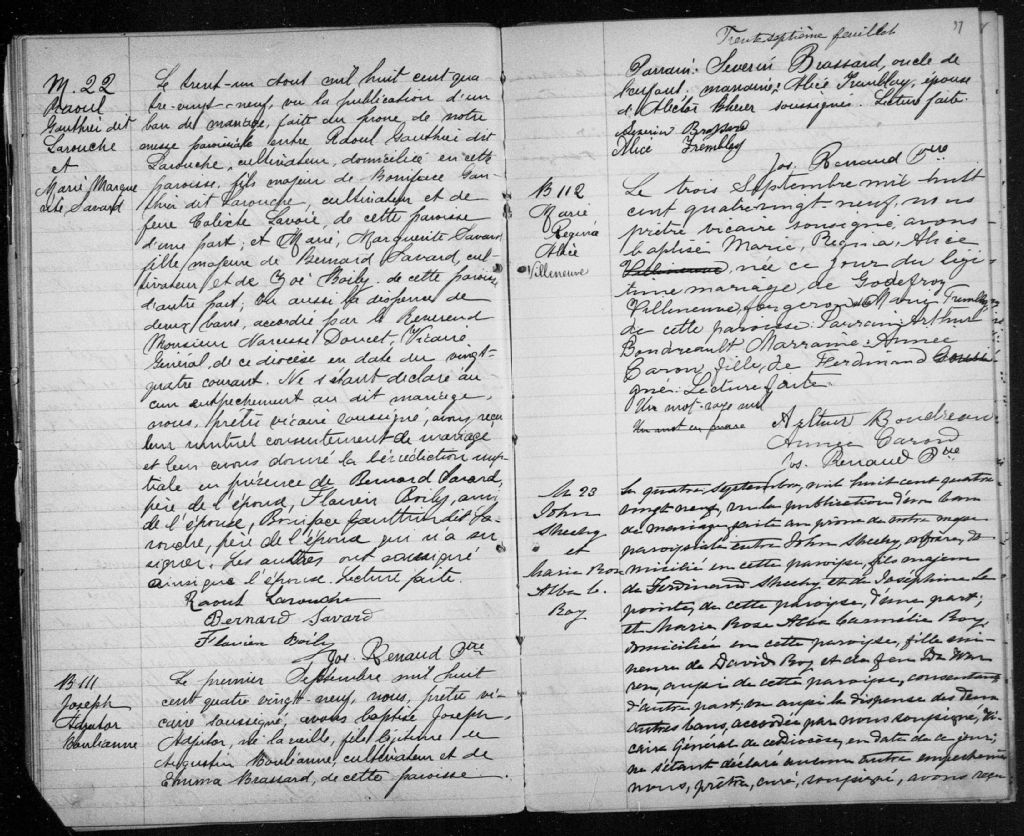 M. 22
Raoul
Gauthier dit
Larouche
et
Marie Margue
rite Savard
Le trent-un Aout mil huit cent qua
tre-vingt-neuf, vu la publication d'un
ban de mariage, faite du prone de notre
messe paroissiale entre Raoul Gauthier dit
Larouche, cultivateur, domicilié en cette
paroisse, fils majeur de Boniface Gau
thier dit Larouche, cultivateur et de
feue Calixte Lavoie, de cette paroisse
d'une part; et Marie, Marguerite Savard
fille majeure de Bernard Savard, cul-
tivateur et de Zoé Boily, de cette paroisse
d'autre part; Vu aussi la dispense de
deux bans, accordée par le Révérend
Monsieur Narcisse Doucet, Vicaire
Général de ce diocèse en date du vingt-
quatre courant. Ne s'étant déclaré au
cun empechement au dit mariage,
nous, prêtre vicaire soussigné, avons reçu
leur mutuel consentement de mariage
et leur avons donné la bénédiction nup-
tiale en présence de Bernard Savard,
père de l'épouse, Flavien Boily, ami
de l'épouse, Boniface Gauthier dit La-
rouche, père de l'époux qui n'a su
signer. Les autres ont soussigné
ainsi que l'épouse. Lecture faite.
Raoul Larouche
Bernard Savard
Flavien Boily
Jos. Renaud Ptre
B 111
Joseph
Adjutor
Boulianne
Le premier Septembre mil huit
cent quatre vingt-neuf, nous, prêtre vi-
caire soussigné, avons baptisé Joseph,
Adjutor, né la veille, fils légitime de
Augustin Boulianne, cultivateur et de
Emma Brassard, de cette paroisse.
Trente septième feuillet
37
Parrain: Severin Brassard, oncle de
l'enfant. marraine: Alice Tremblay, épouse
d'Alector soussignés. Lecture faite.
Severin Brassard
Alice Tremblay
Jos. Renaud Ptre
B 112
Marie
Regina
Alice
Villeneuve
Le trois Septembre mil huit
cent quatre vingt-neuf, nous
prêtre vicaire soussigné, avons
baptisé Marie, Regina, Alice
Villeneuve, née ce jour du légi-
time mariage, de Godefroy
Villeneuve, forgeron et d' Amy Tremblay
de cette paroisse. Parrain: Arthur
Boudreault Marraine: Annee
Caron, fille, de Ferdinand soussi
gnés. Lecture faite.
Un mot rayé nul
Un mot en marge
Arthur Boudreau
Annee Caron
Jos. Renaud Ptre
M 23
John
Sheehy
et
Marie Rose
Alba C.
Roy
Le quatre septembre, mil huit cent quatre
vingt neuf, vu la publication d'un ban
de mariage faite au prone de notre messe
paroissiale entre John Sheehy, do
micilié en cette paroisse, fils majeur
de Ferdinand Sheehy et de Joséphine La
pointe, de cette paroisse, d'une part;
et Marie Rose Alba Carmélie Roy,
domiciliée en cette paroisse, fille mi-
neure de David Roy et de feu
aussi de cette paroisse, consentant
d'autre part; vu aussi la dispense des deux
autres bans, accordée par nous soussigné, Vi-
caire Général de ce diocèse, en date de ce jour;
ne s'étant déclaré aucun autre empechement
nous, prêtre, curé, soussigné, avons reçu